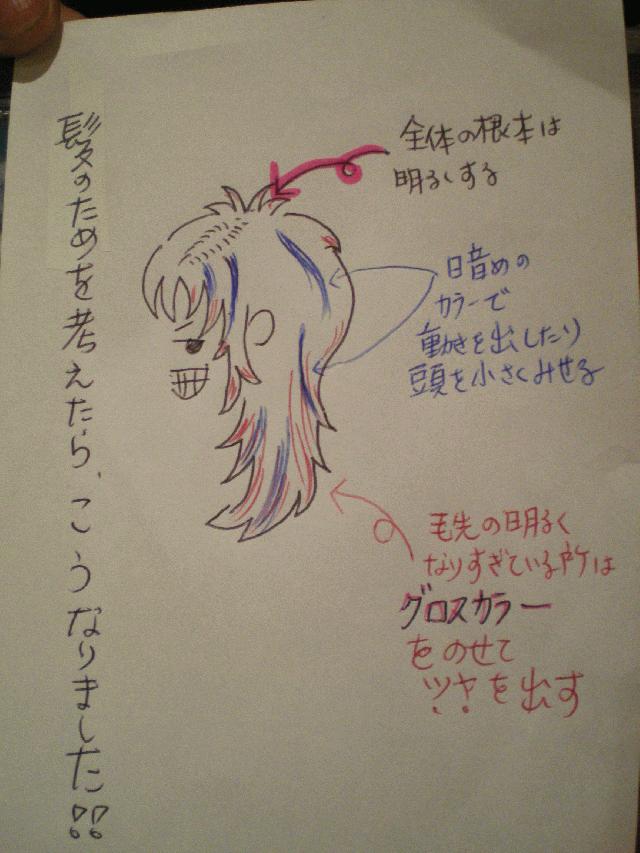 髪のためを考えたら、こうなりました!!
全体の根本は
明るくする
暗めの
カラーで
動きを出したり
頭を小さくみせる
毛先の明るく
なりすぎている所は
グロスカラー
をのせて
ツヤを出す